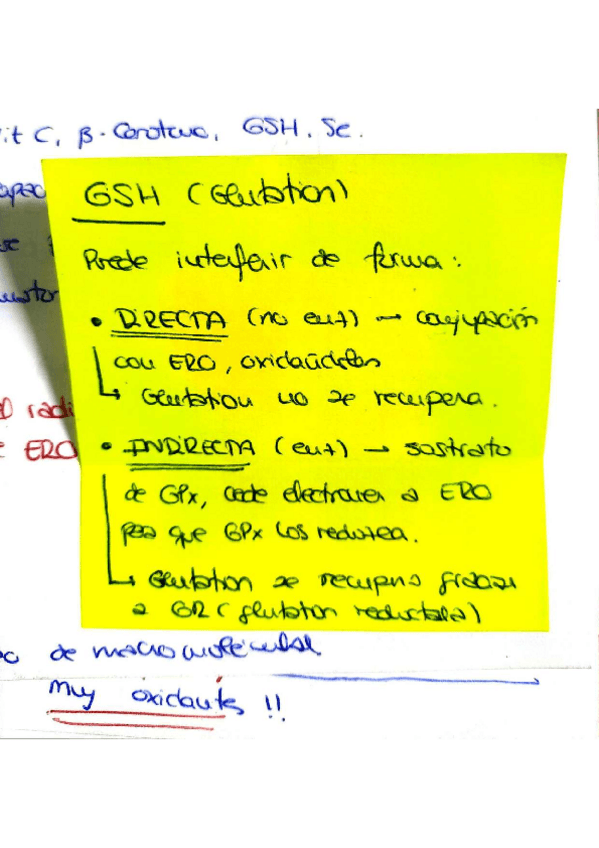 it C, β-Caroteno, GSH, Se.
apac
se
GSH (Glutation)
Puede interferir de forma:
• DIRECTA (no enz) → conjugación
con ERO, oxidándolos
↳ Glutation no se recupera.
radi
ERO
• INDIRECTA (enz) → sustrato
de GPx, cede electrones a ERO
para que GPx los reduzca.
↳ Glutation se recupera gracias
a GR (glutation reductasa)
de macromoléculas.
muy oxidantes !!